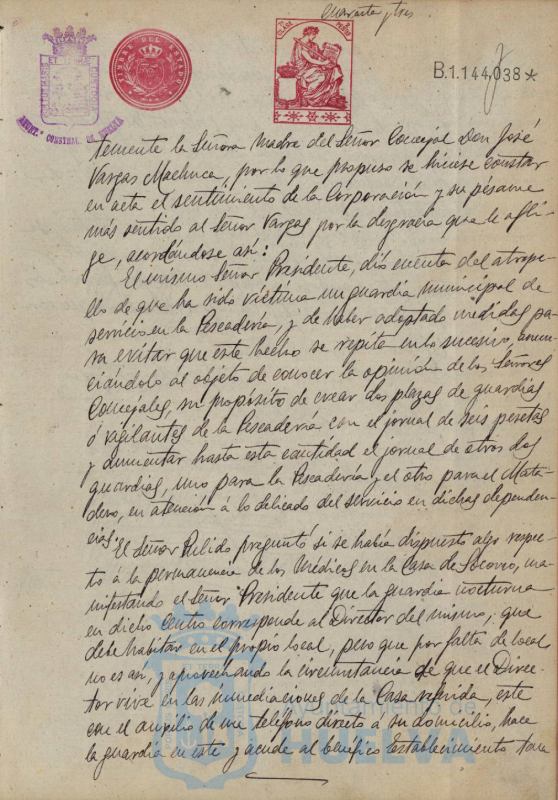 Cuarenta y tres
TIMBRE DEL ESTADO
B.1.144,038*
AYUNT. CONSTNAL. DE HUELVA
temente la Señora Madre del Señor Concejal Don José
Vargas Machuca, por lo que propuso se hiciese constar
en acta el sentimiento de la Corporación y su pésame
más sentido al Señor Vargas por la desgracia que le afli-
ge, acordándose así.
El mismo Señor Presidente, dió cuenta del atrope-
llo de que ha sido víctima un guardia municipal de
servicio en la Pescadería, y de haber adoptado medidas pa-
ra evitar que este hecho se repita en lo sucesivo, anun-
ciándolo al objeto de conocer la opinión de los Señores
Concejales, su propósito de crear dos plazas de guardias
ó vigilantes de la Pescadería con el jornal de seis pesetas
y aumentar hasta esta cantidad el jornal de otros dos
guardias, uno para la Pescadería y el otro para el Mata-
dero, en atención á lo delicado del servicio en dichas dependen-
cias.
El Señor Pulido preguntó si se había dispuesto algo respec-
to á la permanencia de los Médicos en la Casa de Socorro, ma-
nifestando el Señor Presidente que la guardia nocturna
en dicho Centro corresponde al Director del mismo, que
debe habitar en el propio local, pero que por falta de local
no es así, y aprovechando la circunstancia de que el Direc-
tor vive en las inmediaciones de la Casa referida, este
con el auxilio de un teléfono directo á su domicilio, hace
la guardia en este y acude al benéfico Establecimiento tan
Ayuntamiento de
HUELVA